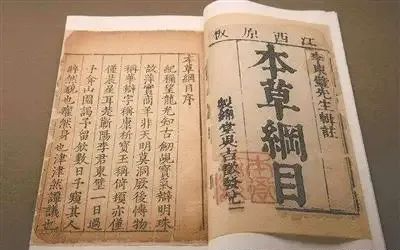 江西原板
李東璧先生輯註
本草綱目
製錦堂
本草綱目序
紀稱望龍光知古劍覘寶氣辨明珠
故萍實商羊非天明莫洞厥後博物
稱華辯字稱康析寶玉稱倚頓亦僅
僅晨星耳楚蘄陽李君東璧一日過
予弇山園謁予留飲數日予窺其人
睟然貌也癯然身也津津然譚議也